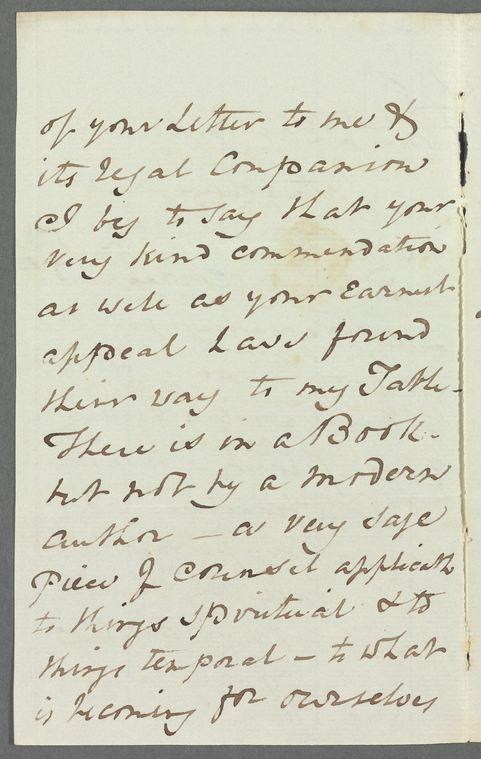 of your Letter to me &
its legal Companion
I beg to say that your
very kind commendation
as well as your Earnest
appeal have found
their way to my Table -
There is in a Book -
but not by a modern
author - a very sage
Piece of counsel applicable
to things spiritual & to
things temporal - to what
is becoming for ourselves